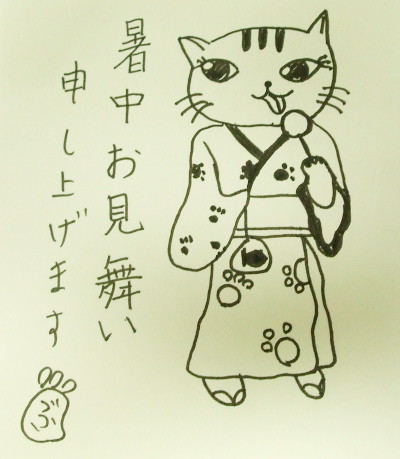 暑中お見舞い
申し上げます
ぶ